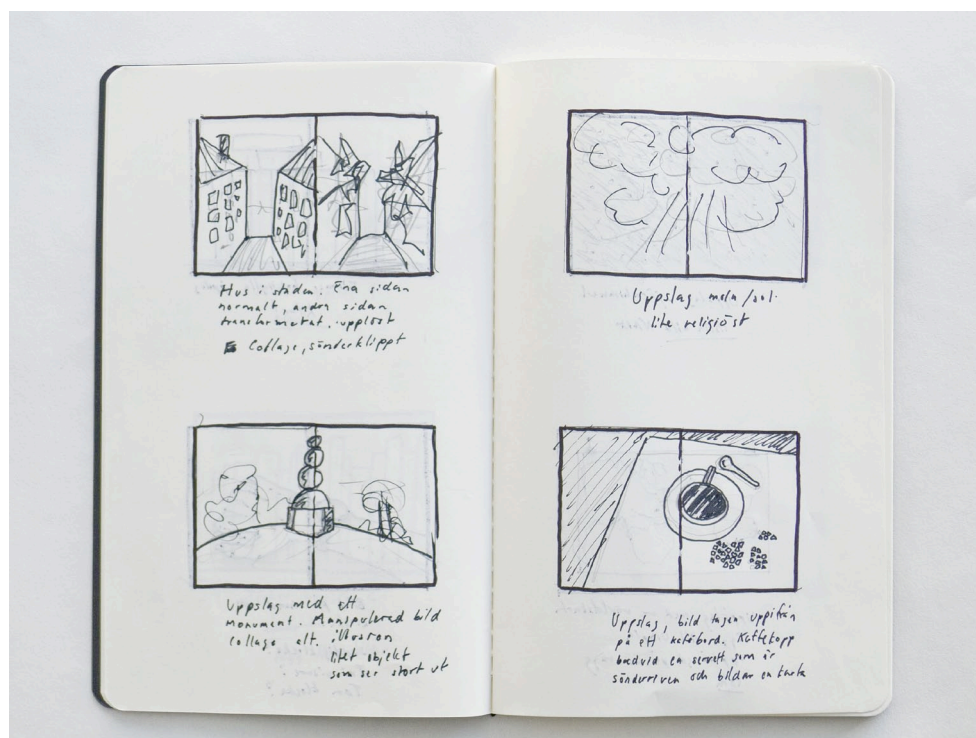 Hus i staden. Ena sidan
normalt, andra sidan
transformerat, upplöst
Collage, sönderklippt
Uppslag med ett
monument. Manipulered bild
collage alt. illusion
litet objekt
som ser stort ut
Uppslag moln / sol.
lite religiöst
Uppslag, bild tagen uppifrån
på ett kafébord. Kaffekopp
bredvid en servett som är
sönderriven och bildar en karta